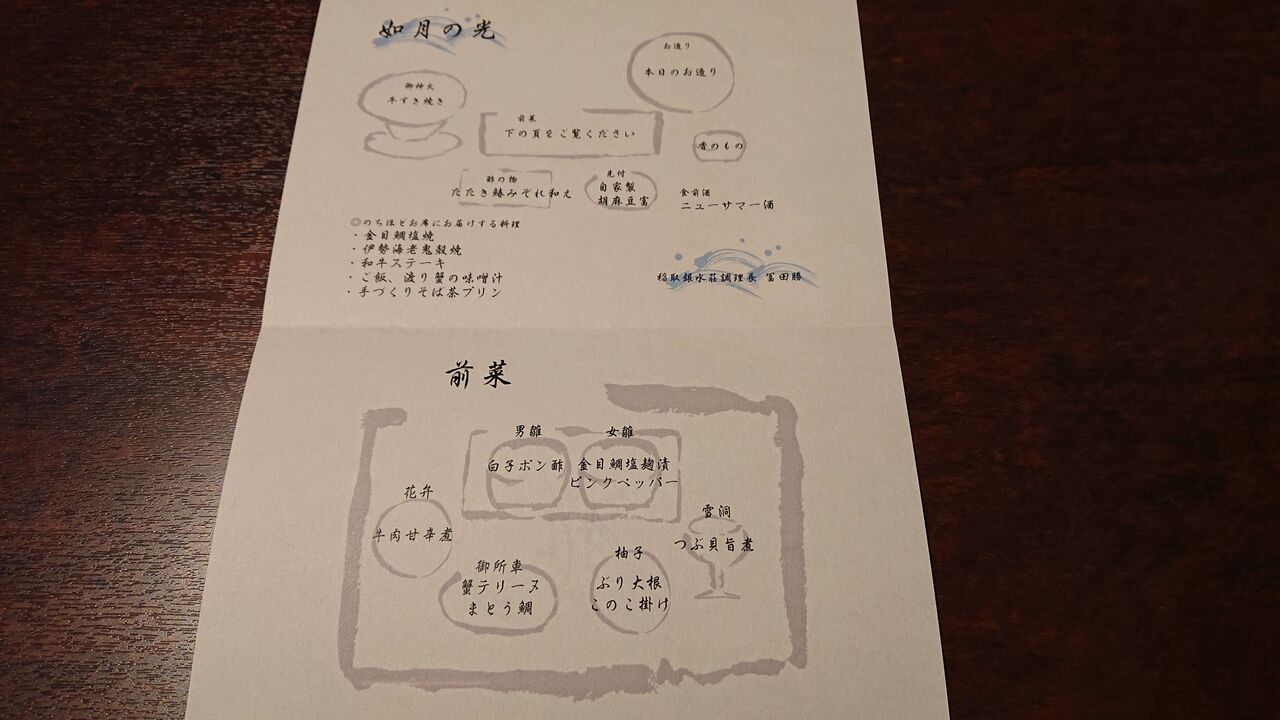 如月の光
お造り
本日のお造り
御神火
牛すき焼き
前菜
下の頁をご覧ください
香のもの
酢の物
たたき鰆みぞれ和え
先付
自家製
胡麻豆富
食前酒
ニューサマー酒
◎のちほどお席にお届けする料理
・金目鯛塩焼
・伊勢海老鬼殻焼
・和牛ステーキ
・ご飯、渡り蟹の味噌汁
・手づくりそば茶プリン
稲取銀水荘調理長 冨田勝
前菜
男雛
白子ポン酢
女雛
金目鯛塩麹漬
ピンクペッパー
花弁
牛肉甘辛煮
雪洞
つぶ貝旨煮
御所車
蟹テリーヌ
まとう鯛
柚子
ぶり大根
このこ掛け